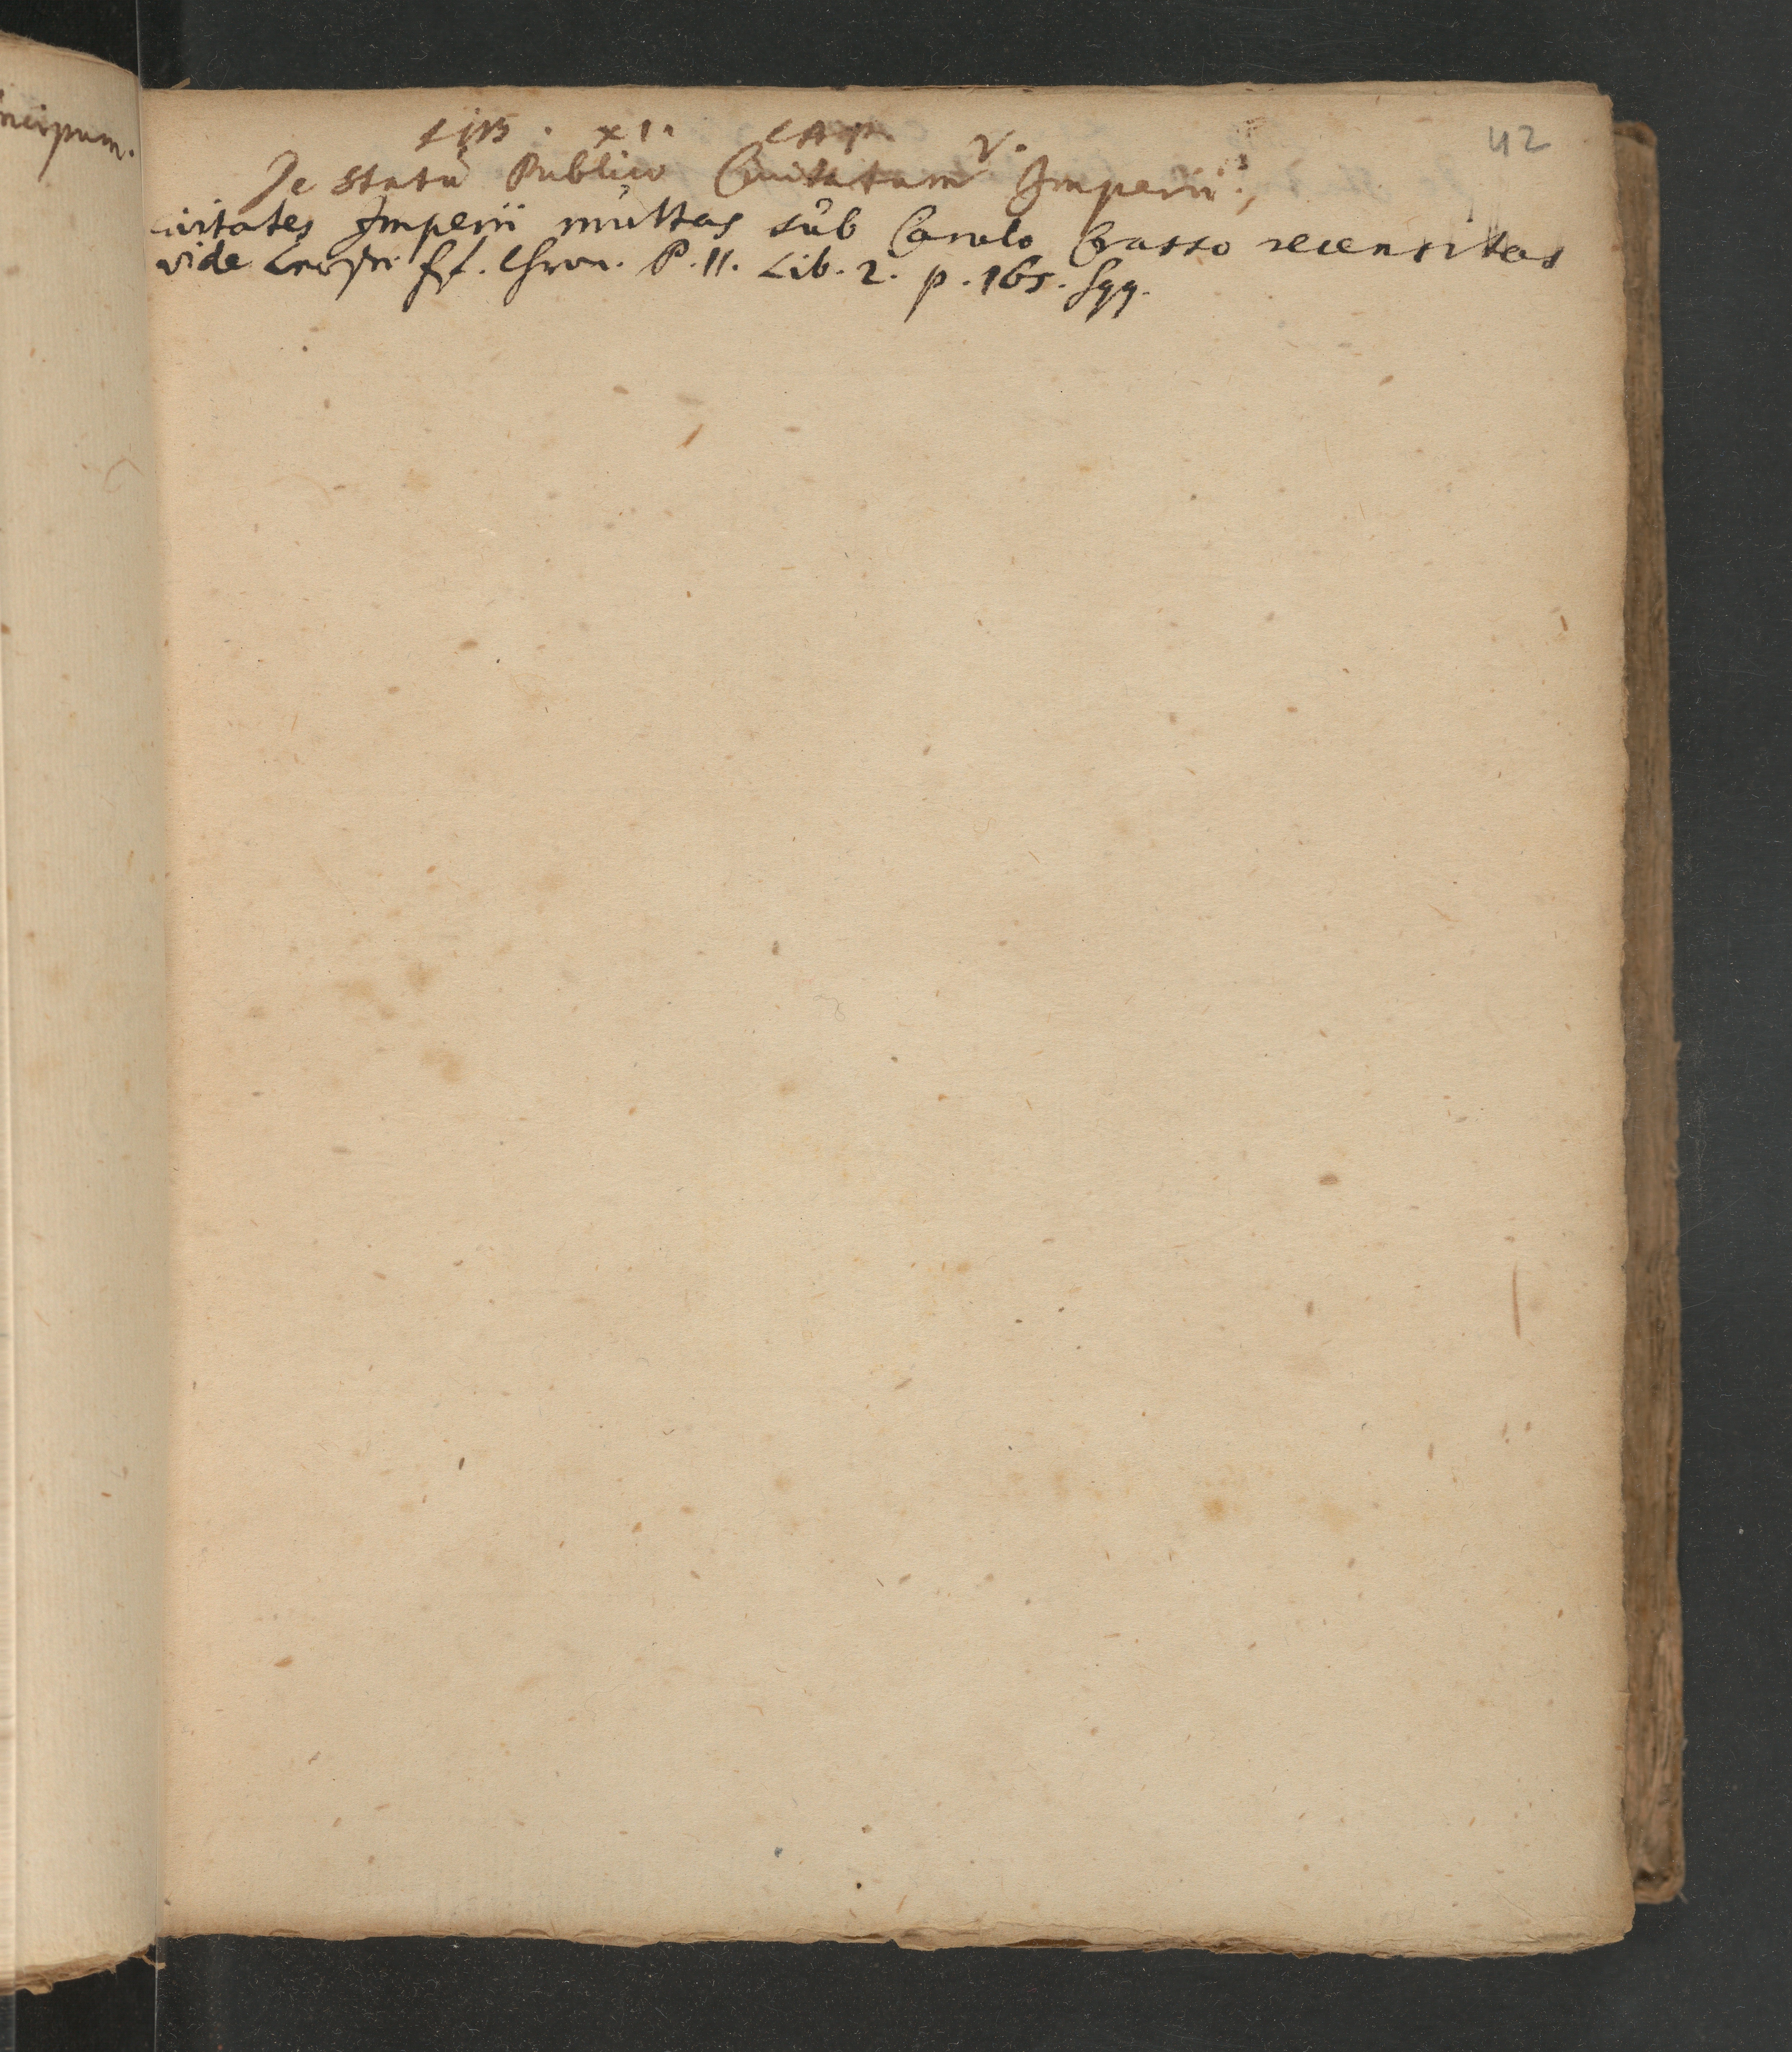 ncipum.
42
LIB. XI. CAP. V.
De Statu Publico Civitatum Imperii.
civitates Imperii multas sub Carolo Crasso recensitas
vide ff. Chron. P. II. Lib. 2. p. 165. sqq.